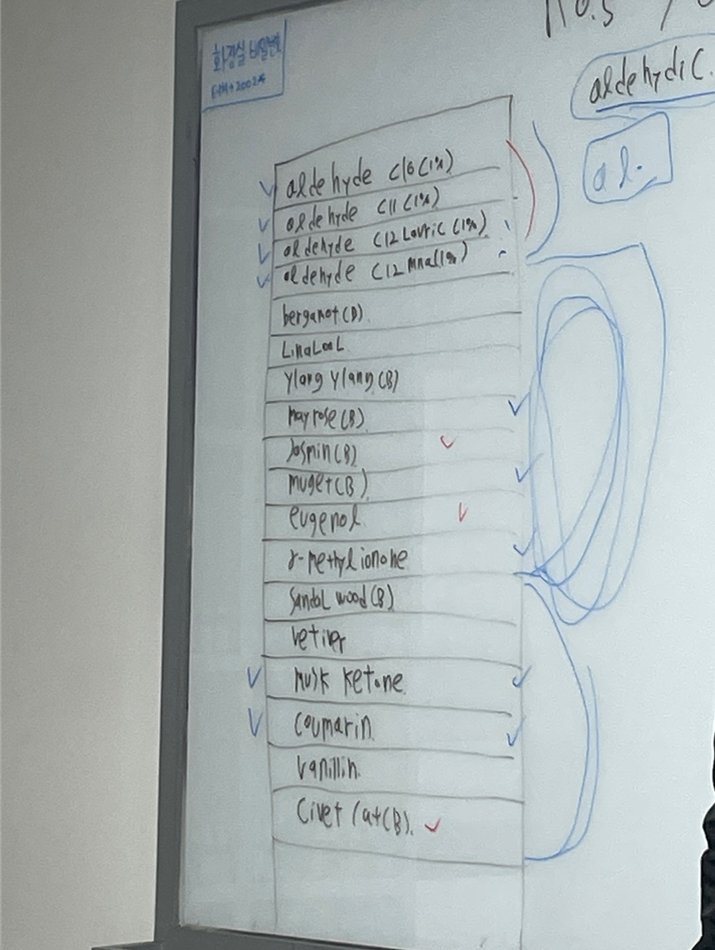 화장실 비밀번호
No.5
aldehydic
al.
aldehyde C10(1%)
aldehyde C11(1%)
aldehyde C12 Lauric(1%)
aldehyde C12 mna(1%)
bergamot(B)
LinaLooL
Ylang Ylang(B)
may rose(B)
Jasmin(B)
muget(B)
eugenol
γ-methyl ionone
Sandal wood(B)
vetiver
musk ketone
Coumarin
Vanillin
Civet Cat(B).